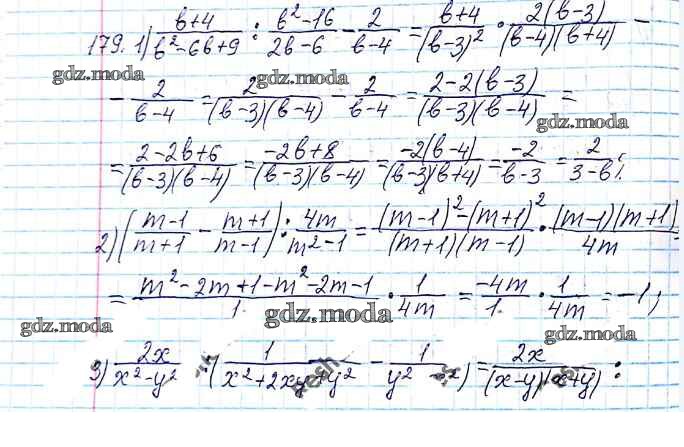 179. 1) (b+4)/(b²-6b+9) : (b²-16)/(2b-6) - 2/(b-4) = (b+4)/(b-3)² · 2(b-3)/((b-4)(b+4)) -
gdz.moda gdz.moda gdz.moda
- 2/(b-4) = 2/((b-3)(b-4)) - 2/(b-4) = (2-2(b-3))/((b-3)(b-4)) =
gdz.moda
= (2-2b+6)/((b-3)(b-4)) = (-2b+8)/((b-3)(b-4)) = (-2(b-4))/((b-3)(b+4)) = -2/(b-3) = 2/(3-b);
gdz.moda
2) ((m-1)/(m+1) - (m+1)/(m-1)) : 4m/(m²-1) = ((m-1)²-(m+1)²)/((m+1)(m-1)) · ((m-1)(m+1))/4m =
gdz.moda
= (m²-2m+1-m²-2m-1)/1 · 1/4m = -4m/1 · 1/4m = -1;
gdz.moda gdz.moda gdz.moda
3) 2x/(x²-y²) : (1/(x²+2xy+y²) - 1/(y²-x²)) = 2x/((x-y)(x+y)) :